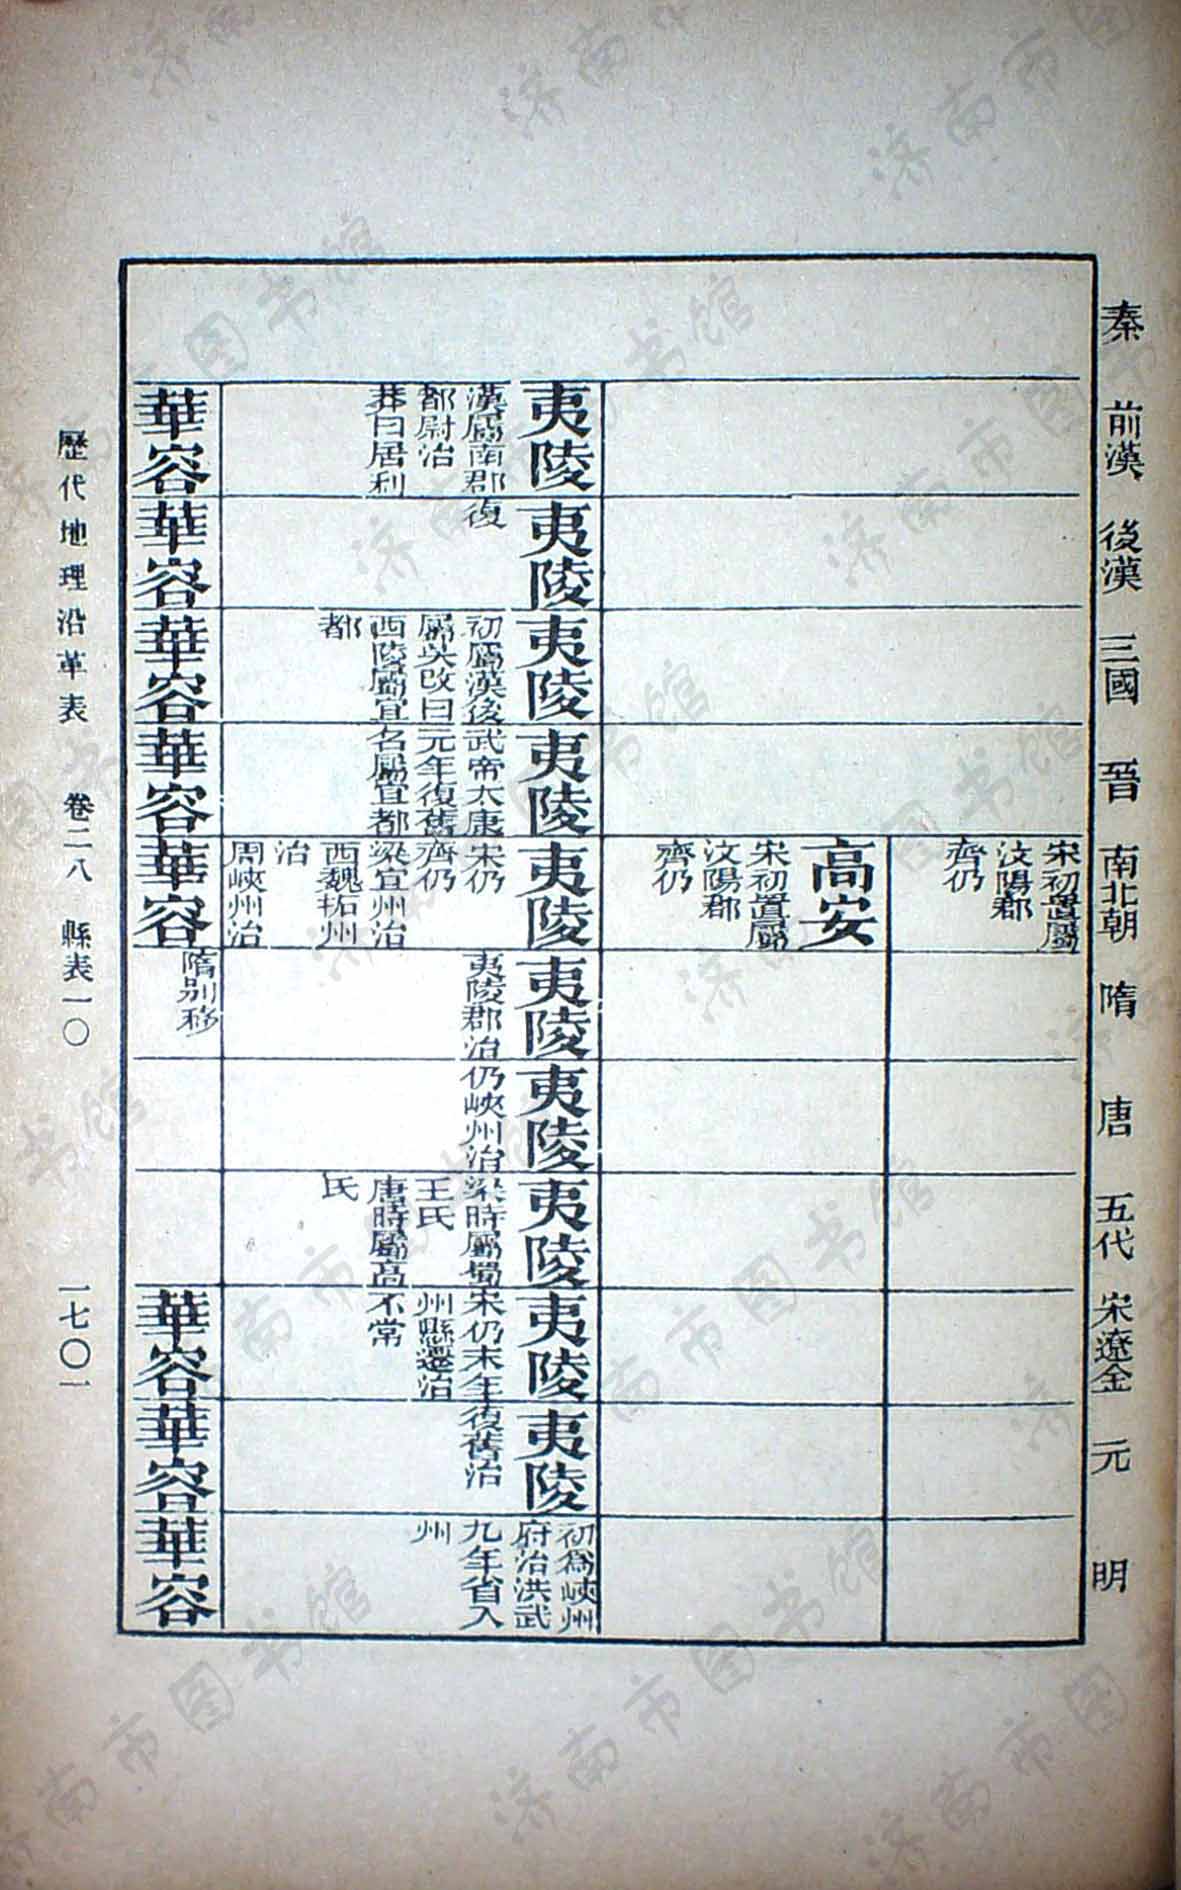 秦 前漢 後漢 三國 晉 南北朝 隋 唐 五代 宋遼金 元 明
宋初置屬
汶陽郡
齊仍
高安
宋初置屬
汶陽郡
齊仍
夷陵
漢屬南郡
都尉治
莽曰居利
夷陵
復
夷陵
初屬漢後
屬吳改曰
西陵屬宜
都
夷陵
武帝太康
元年復舊
名屬宜都
夷陵
宋仍
齊仍
梁宜州治
西魏拓州
治
周峽州治
夷陵
夷陵郡治
夷陵
仍峽州治
夷陵
梁時屬蜀
王氏
唐時屬高
氏
夷陵
宋仍末年
州縣遷治
不常
夷陵
復舊治
初爲峽州
府治洪武
九年省入
州
華容
華容
華容
華容
華容
隋别移
華容
華容
華容
歷代地理沿革表 卷二八 縣表一〇 一七〇一
济南市图书馆